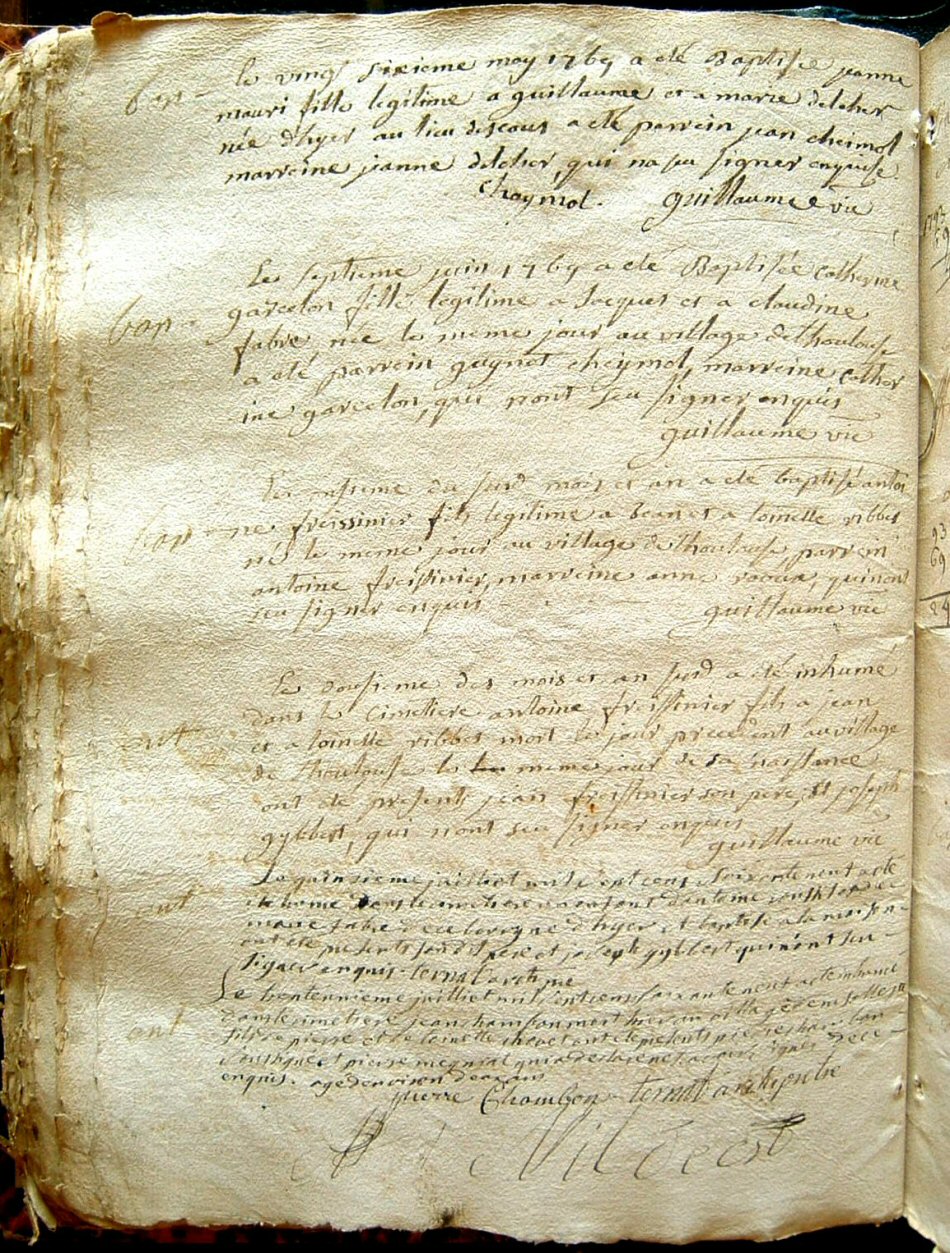 bap - le vingt sixieme may 1769 a eté Baptisée jeanne
mauri fille legitime a guillaume et a marie delcher
née d'hyer au lieu descous a eté parrein jean cheimol
marreine jeanne delcher, qui na su signer enquise
chaymol. guillaume vic
Le septieme juin 1769 a eté Baptisée catherine
bap - garcelon fille legitime a Jacques et a claudine
fabre née le meme jour au village de thoulouse
a eté parrein guynot cheymol, marreine cather
ine garcelon, qui nont seu signer enquis
guillaume vic
Le onsieme du susd mois et an a eté baptisé antoi
bap - ne freissinier fils legitime a Jean et a toinette ribbes
né le meme jour au village de thoulouse, parrein
antoine freissinier, marreine anne, qui nont
seu signer enquis guillaume vic
Le dousieme des mois et an susd a eté inhumé
dans le cimetiere antoine freissinier fils a jean
ent et a toinette ribbes mort le jour precedent au village
de thoulouse le meme jour de sa naissance
ont eté presents jean freissinier son pere, et joseph
gybbert, qui nont seu signer enquis
guillaume vic
Le quinsieme juilliet mil sept cens soixante neuf a eté
ent inhumé dans le cimetiere un enfant d'antoine et de
marie fabre d'hyer et baptisé a la maison
ont eté presents son dit pere et joseph gybbert qui nont seu
signer enquis. ternat archipre
Le trentenieme juilliet mil sept cens soixante neuf a eté inhumé
ent dans le cimetiere jean chambon mort hier au village
fils de pierre et de toinette ont eté presents pierre chambon
et pierre meyniat qui a declaré ne sçavoir signer de ce
enquis. agé denviron deux ans
pierre Chambon ternat archiprètre